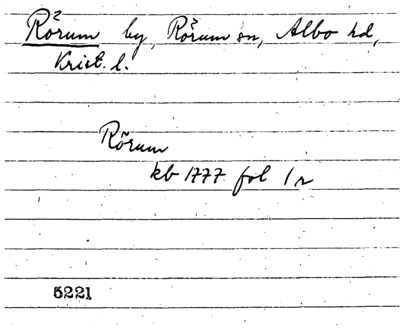 Rörum by, Rörum sn, Albo hd,
Krist. l.
Rörum
kb 1777 fol 1r
5221